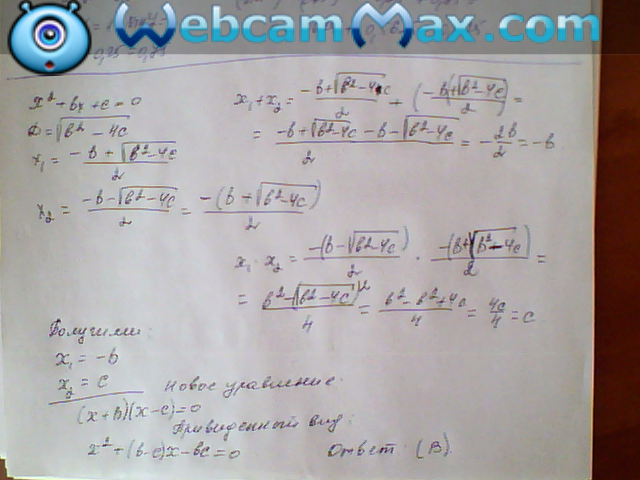 WebcamMax.com
x² + bx + c = 0
D = √(b² - 4c)
x₁ = (-b + √(b² - 4c))/2
x₂ = (-b - √(b² - 4c))/2 = -(b + √(b² - 4c))/2
x₁ + x₂ = (-b + √(b² - 4c))/2 + (-(b + √(b² - 4c))/2) =
= (-b + √(b² - 4c) - b - √(b² - 4c))/2 = -2b/2 = -b
x₁ · x₂ = -(b - √(b² - 4c))/2 · -(b + √(b² - 4c))/2 =
= (b² - (√(b² - 4c))²)/4 = (b² - b² + 4c)/4 = 4c/4 = c
Получили:
x₁ = -b
x₂ = c
Новое уравнение:
(x + b)(x - c) = 0
Приведенный вид:
x² + (b - c)x - bc = 0
Ответ: (B)